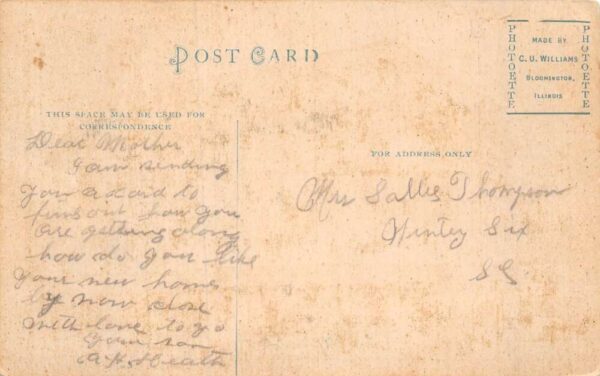 POST CARD
PHOTOETTE
MADE BY
C. U. WILLIAMS
BLOOMINGTON,
ILLINOIS
PHOTOETTE
THIS SPACE MAY BE USED FOR
CORRESPONDENCE
FOR ADDRESS ONLY
Dear Mother
I am sending
you a card to
find out how you
are getting along
how do you like
your new home
by now close
with love to yo
your son
A.H. Heath
Mrs Sallie Thompson
Ninety Six
SC